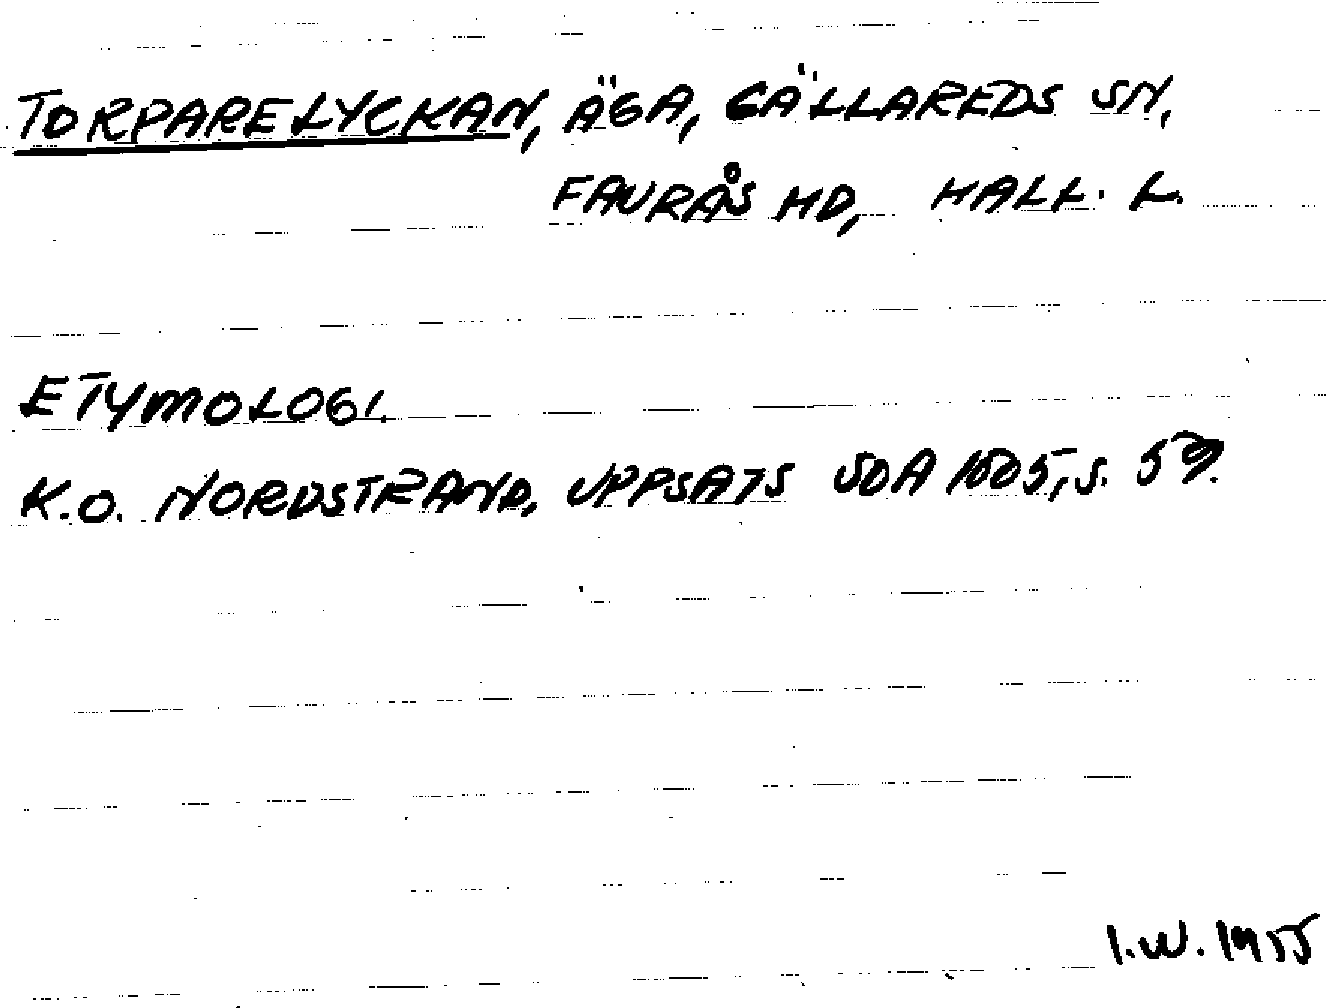 TORPARELYCKAN, ÄGA, GÄLLAREDS SN,
FAURÅS HD, HALL. L.
ETYMOLOGI.
K.O. NORDSTRAND, UPPSATS SOA 1505, S. 59.
I.W. 1955